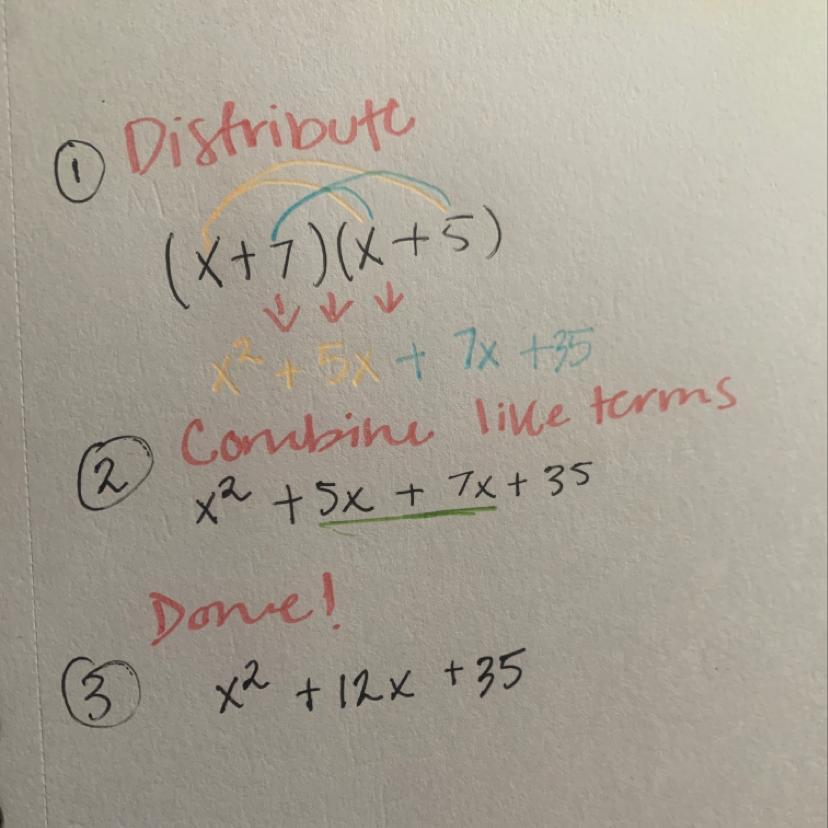 ① Distribute
(x+7)(x+5)
↓ ↓ ↓
x² + 5x + 7x +35
② Combine like terms
x² + 5x + 7x + 35
Done!
③ x² + 12x + 35